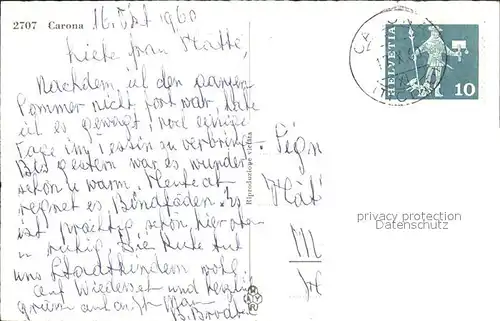 2707 Carona
16. Okt 1960
Liebe Frau Mätté,
Nachdem ich den ganzen
Sommer nicht fort war, habe
ich es gewagt, noch einige
Tage im Tessin zu verbring-
Bis gestern war es wunder
schön u warm. Heute
regnet es Bindfäden. Es
ist prächtig schön hier oben
u ruhig. Die Ruhe tut
uns Stadtkindern wohl.
Auf Wiedersehen und herzlich
grüssen
B.
Riproduzione vietata
HELVETIA
10
Sign
Mät
privacy protection
Datenschutz
M